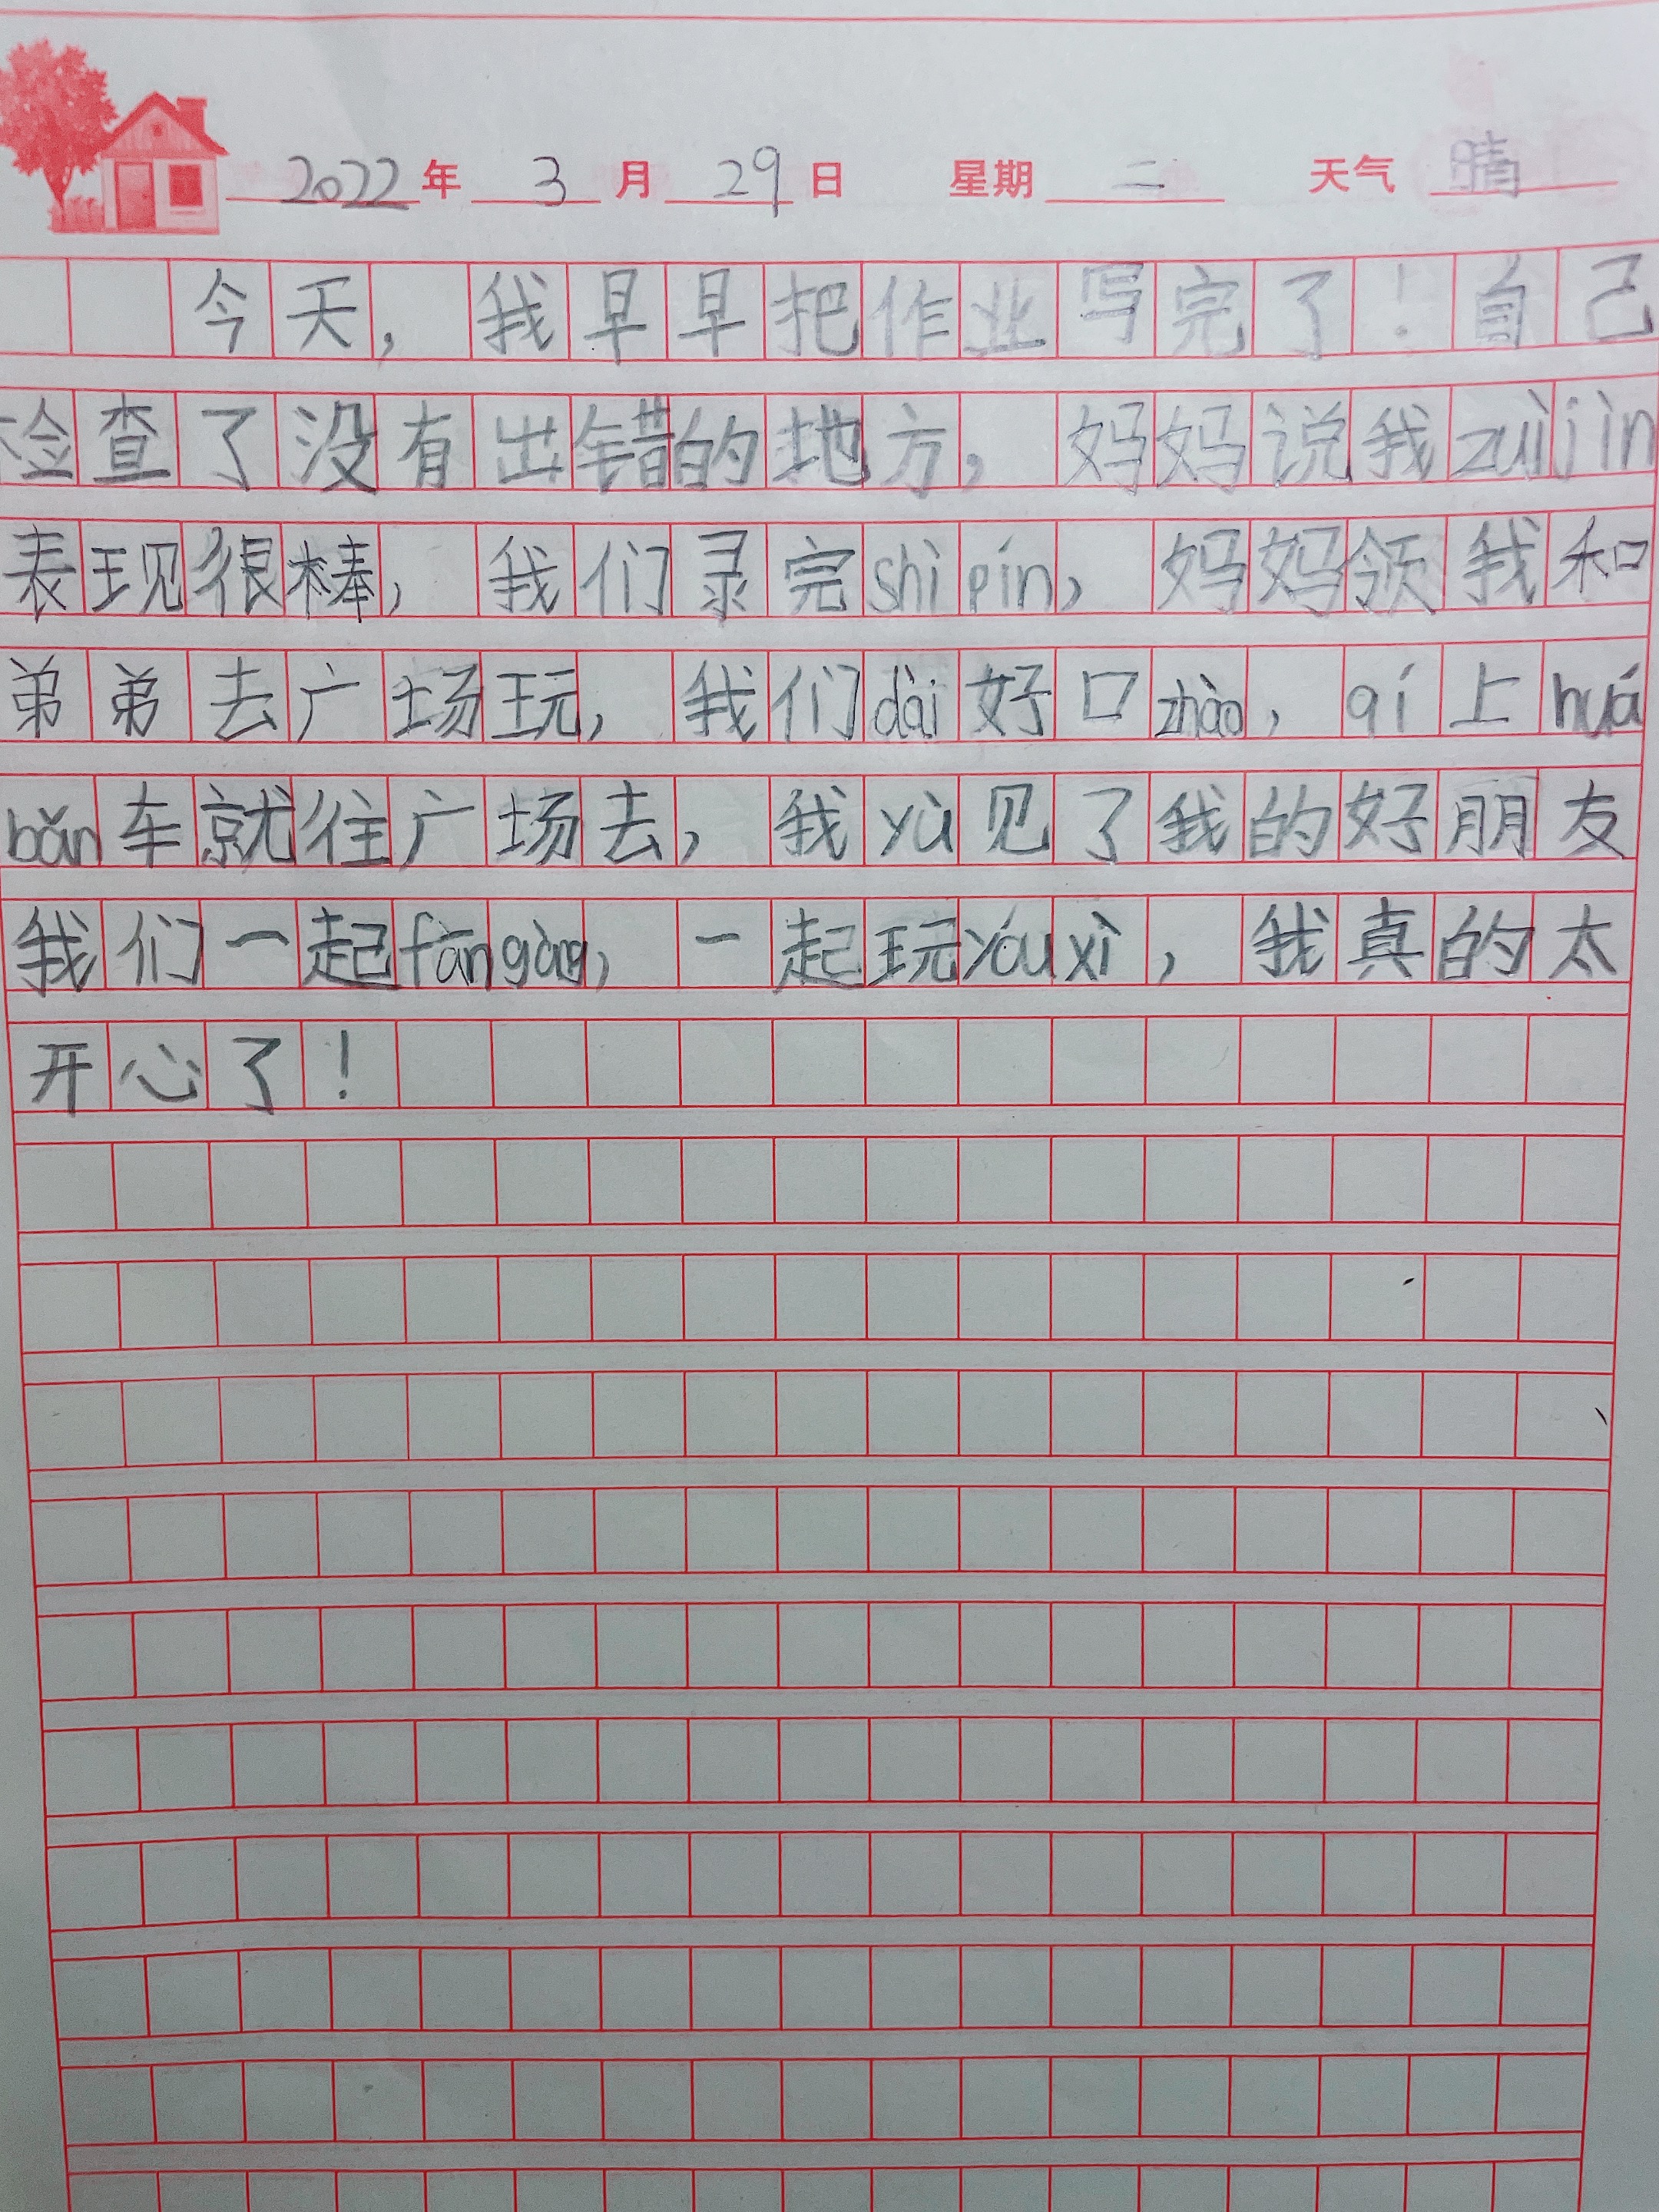 2022年 3月 29日 星期 二 天气 晴
今天，我早早把作业写完了！自己
检查了没有出错的地方，妈妈说我zuìjìn
表现很棒，我们录完shìpín，妈妈领我和
弟弟去广场玩，我们dài好口zhào，qí上huá
bǎn车就往广场去，我yù见了我的好朋友
我们一起fāngàng，一起玩yóuxì，我真的太
开心了！